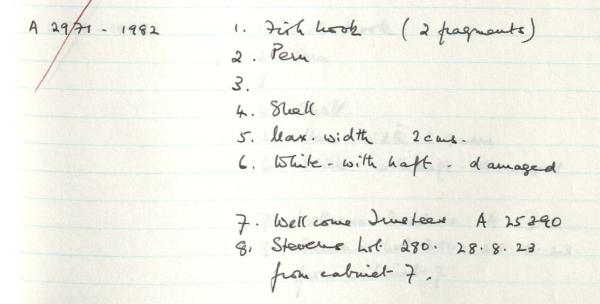 A 2971 - 1982 1. Fish hook (2 fragments)
2. Peru
3.
4. Shell
5. Max. width 2cms.
6. White - with haft - damaged
7. Wellcome Trustees A 25390
8. Stevens Lot. 280. 28.8.23
from cabinet 7.